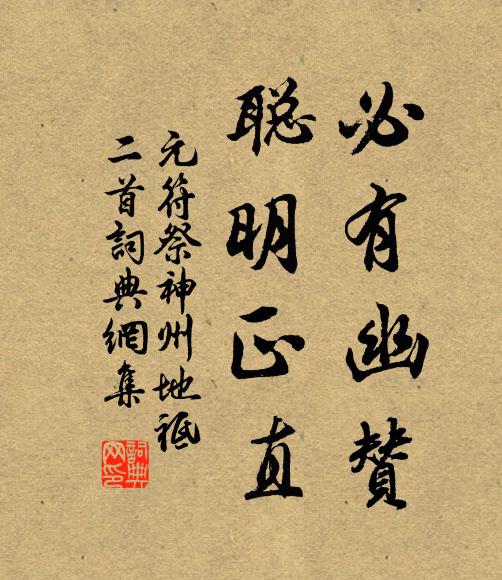 必有幽赞
聪明正直
元符祭神州地祗
二首詞典網集
詞典
网印